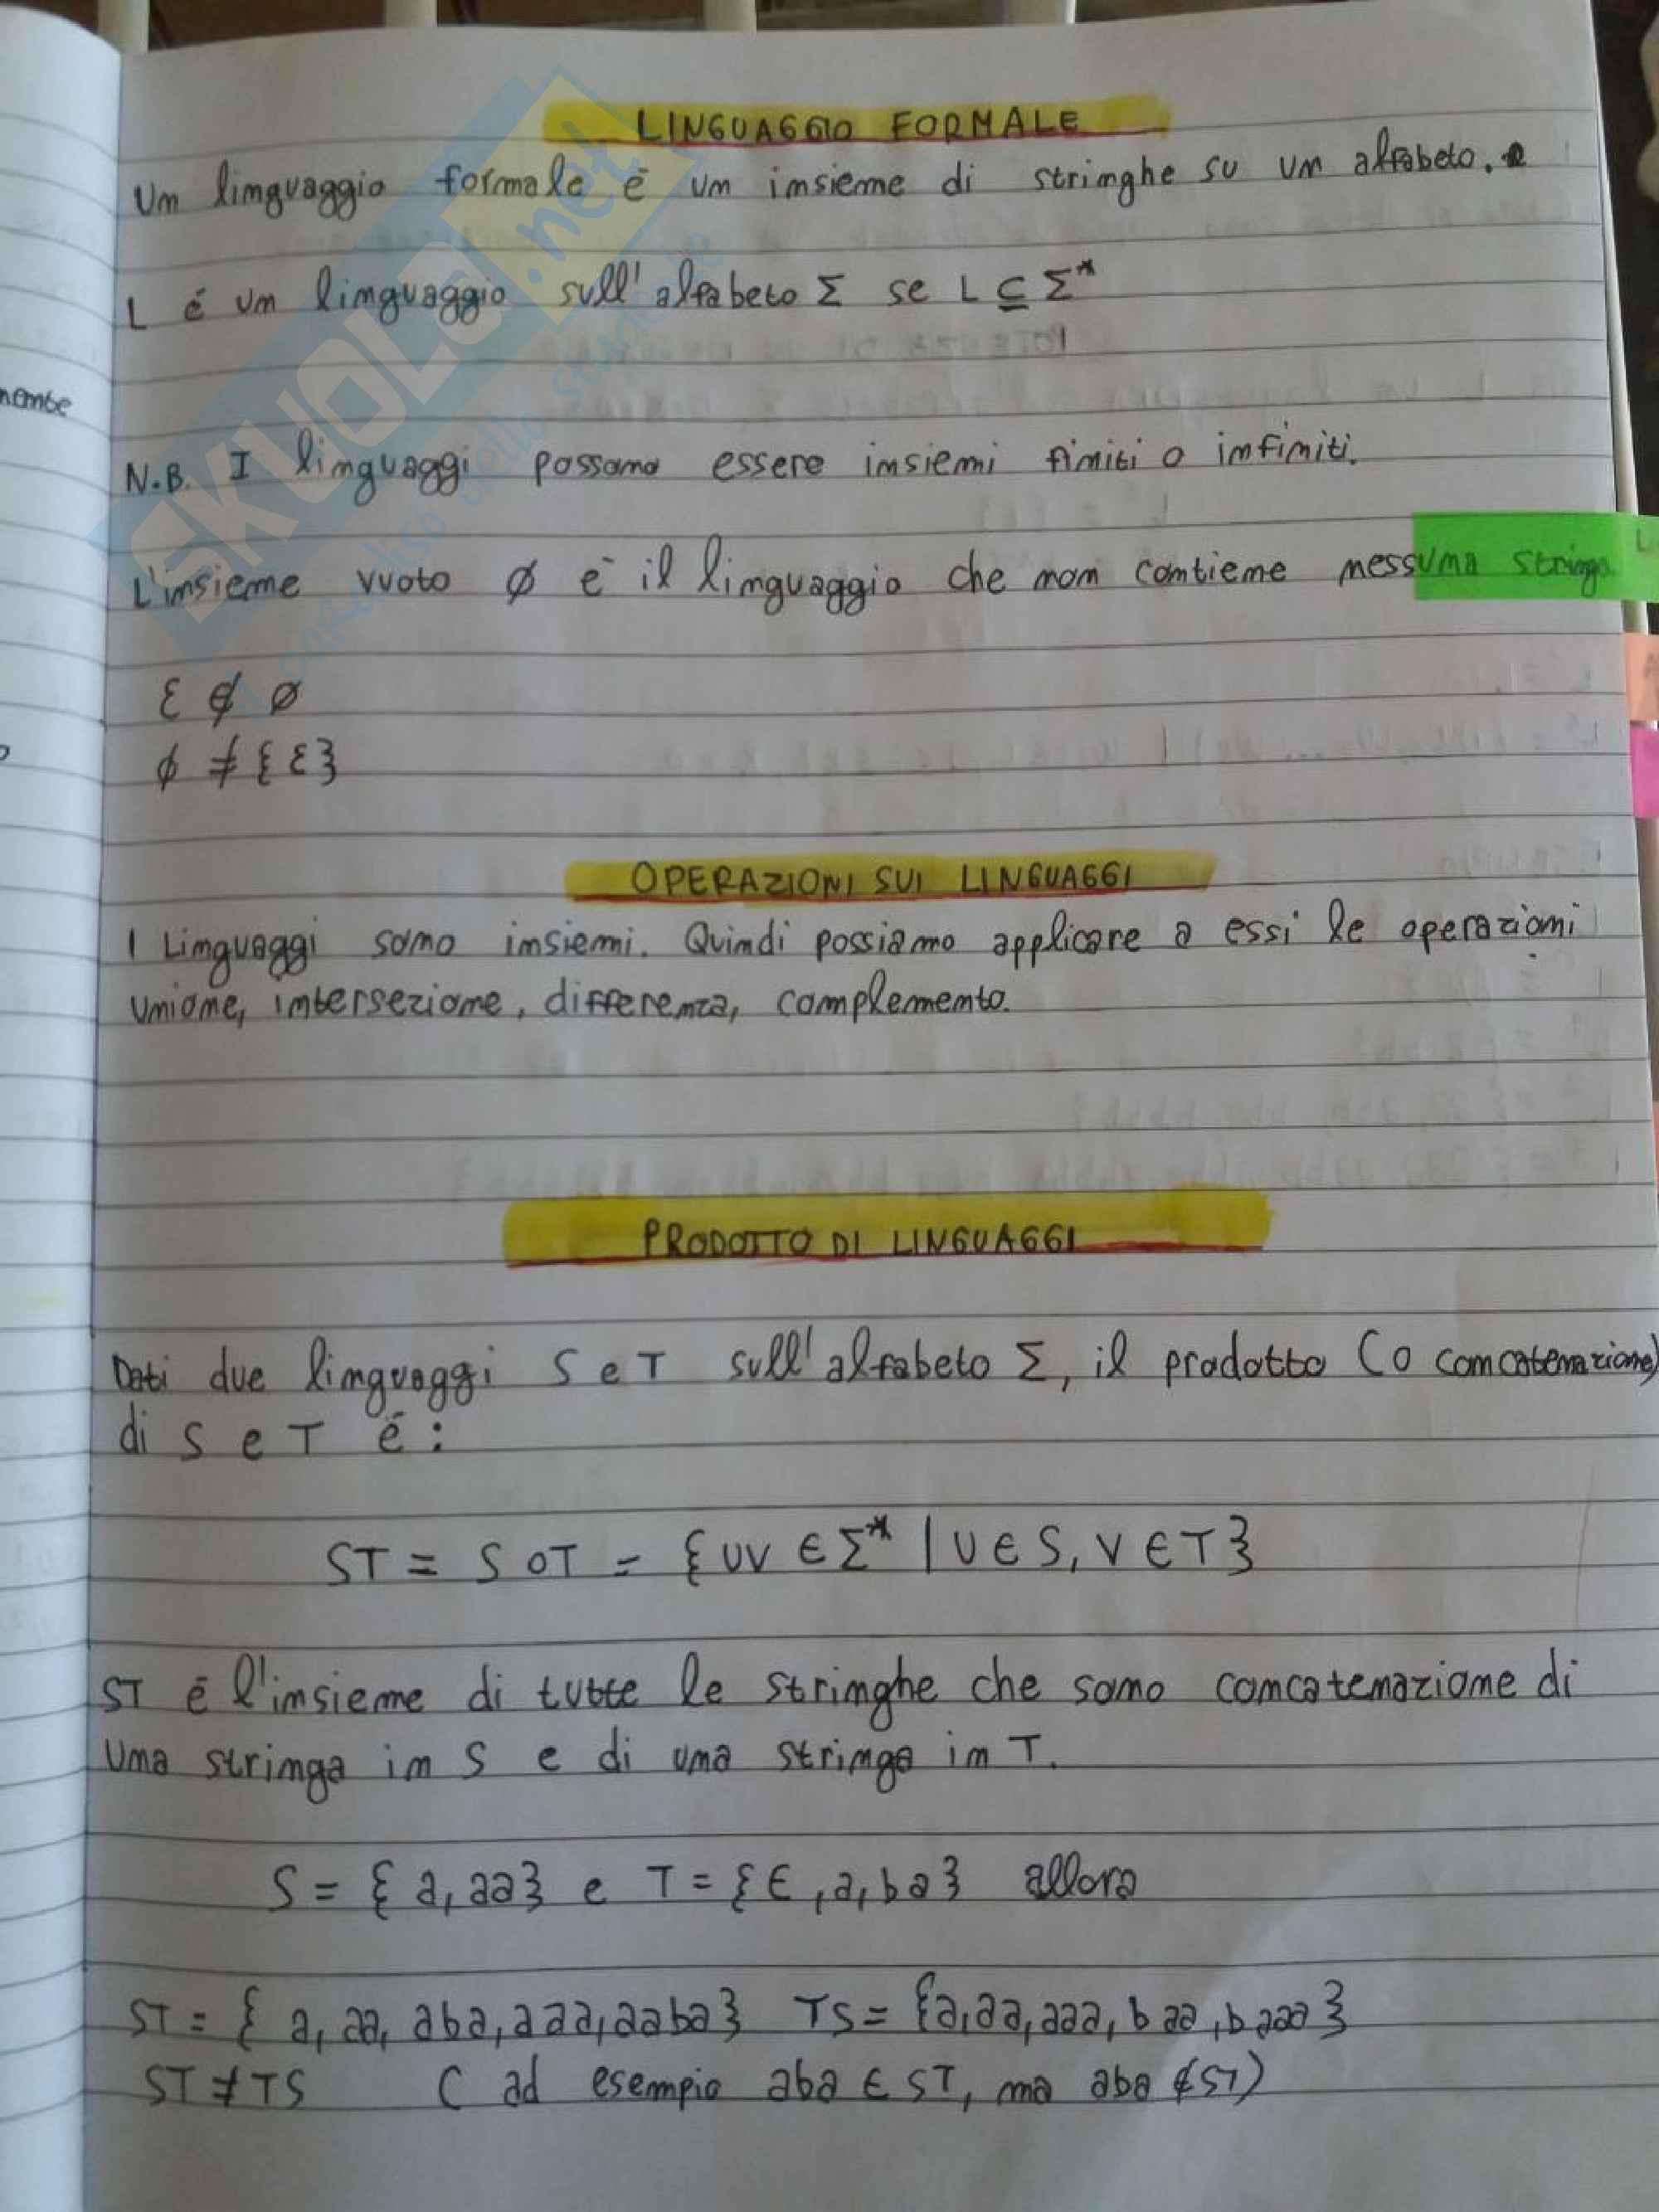 LINGUAGGIO FORMALE
Un linguaggio formale é un insieme di stringhe su un alfabeto.
L é un linguaggio sull'alfabeto Σ se L ⊆ Σ*
N.B. I linguaggi possono essere insiemi finiti o infiniti.
L'insieme vuoto ∅ é il linguaggio che non contiene nessuna stringa
ε ∉ ∅
∅ ≠ {ε}
OPERAZIONI SUI LINGUAGGI
I Linguaggi sono insiemi. Quindi possiamo applicare a essi le operazioni
unione, intersezione, differenza, complemento.
PRODOTTO DI LINGUAGGI
Dati due linguaggi S e T sull'alfabeto Σ, il prodotto (o concatenazione)
di S e T é:
ST = S o T = {UV ∈ Σ* | U ∈ S, V ∈ T}
ST é l'insieme di tutte le stringhe che sono concatenazione di
una stringa in S e di una stringa in T.
S = {a, aa} e T = {ϵ, a, ba} allora
ST = {a, aa, aba, aaa, aaba} TS = {a, aa, aaa, baa, baaa}
ST ≠ TS (ad esempio aba ∈ ST, ma aba ∉ ST)
SKUOLA.net